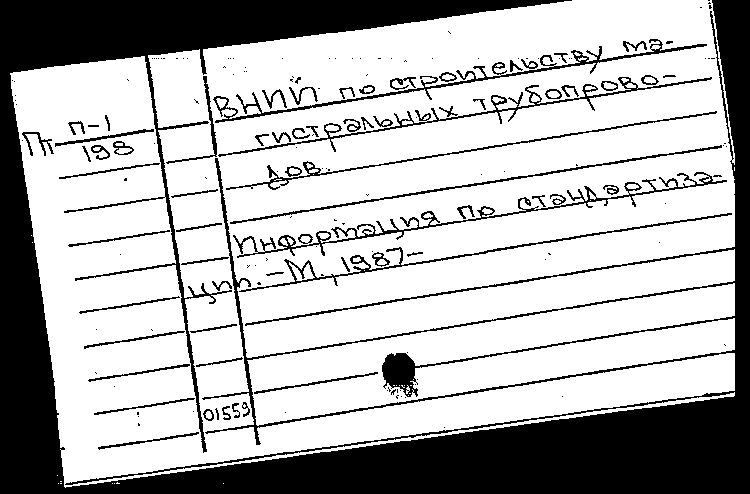 Пт П-1
198
ВНИЙ по строительству ма-
гистральных трубопрово-
дов.
Информация по стандартиза-
ции. -М., 1987-
01559